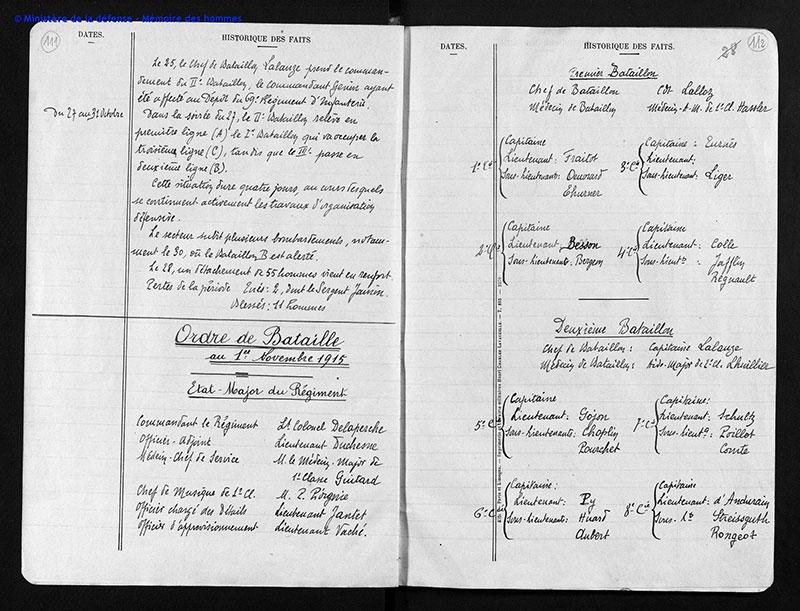 © Ministère de la défense - Mémoire des hommes
111
DATES.
HISTORIQUE DES FAITS
Le 25, le Chef de Bataillon Lalauze prend le comman-
dement du IIe Bataillon, le commandant Génin ayant
été affecté au Dépôt du 69e Régiment d'Infanterie.
Du 27 au 31 Octobre
Dans la soirée du 27, le IIe Bataillon relève en
première ligne (A) le Ier Bataillon qui va occuper la
troisième ligne (C), tandis que le IIIe passe en
deuxième ligne (B).
Cette situation dure quatre jours, au cours desquels
se continuent activement les travaux d'organisation
défensive.
Le secteur subit plusieurs bombardements, notam-
ment le 30, où le Bataillon B est alerté.
Le 28, un détachement de 55 hommes vient en renfort
Pertes de la période Tués: 2, dont le Sergent
Blessés: 11 hommes
Ordre de Bataille
au 1er Novembre 1915
Etat-Major du Régiment
Commandant le Régiment Lt Colonel Delaperche
Officier-Adjoint Lieutenant Duchesne
Médecin-Chef de Service M. le Médecin-Major de
1e Classe Guitard
Chef de Musique de 1e Cl. M.
Officier chargé des Détails Lieutenant Jantet
Officier d'approvisionnement Lieutenant Vaché.
DATES.
HISTORIQUE DES FAITS.
28 112
Premier Bataillon
Chef de Bataillon Cdt Lalloz
Médecin de Bataillon Médecin-A-M. de 1e Cl. Hassler
1e Cie
Capitaine
Lieutenant: Fraitot
Sous-Lieutenants:
Thurner
3e Cie
Capitaine:
Lieutenant:
Sous-Lieutenant: Liger
2e Cie
Capitaine
Lieutenant Besson
Sous-Lieutenants: Bergeon
4e Cie
Capitaine
Lieutenant: Colle
Sous-Lieuts: Jafflin
Régnault
Deuxième Bataillon
Chef de Bataillon: Capitaine Lalauze
Médecin de Bataillon: Aide-Major de 2e Cl. Lhuillier
5e Cie
Capitaine
Lieutenant: Gojon
Sous-Lieutenants: Choplin
Pourchet
7e Cie
Capitaine:
Lieutenant: Schultz
Sous-Lieuts: Poillot
Comte
6e Cie
Capitaine:
Lieutenant: Py
Sous-Lieutenants: Huard
Aubert
8e Cie
Capitaine
Lieutenant: d'Andurain
Sous-Lts Streissguth
Rongeot